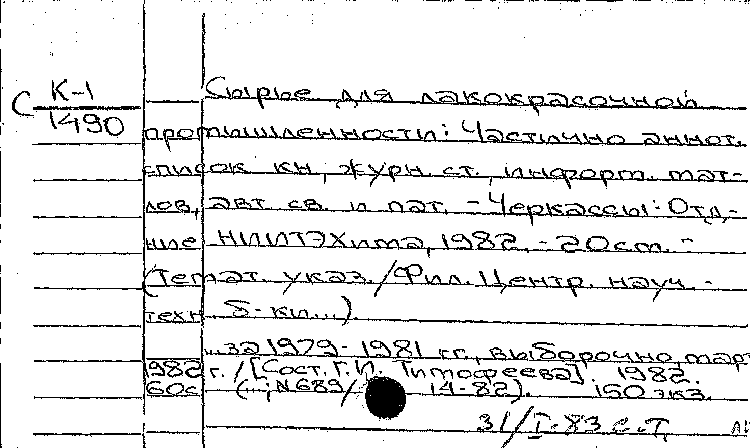 С К-1
1490
Сырье для лакокрасочной
промышленности: Частично аннот.
список кн, журн. ст., информ. мат-
лов, авт. св. и пат. - Черкассы: Отд-
ние НИИТЭХима, 1982. - 20см. -
(Темат. указ. / Фил. Центр. науч. -
техн. б-ки...).
...за 1979-1981 гг., выборочно, март
1982 г. / [Сост. Г.И. Тимофеева]. 1982.
60с. (...; N 689/ 14-82). 150 экз.
31/I-83 с.т.